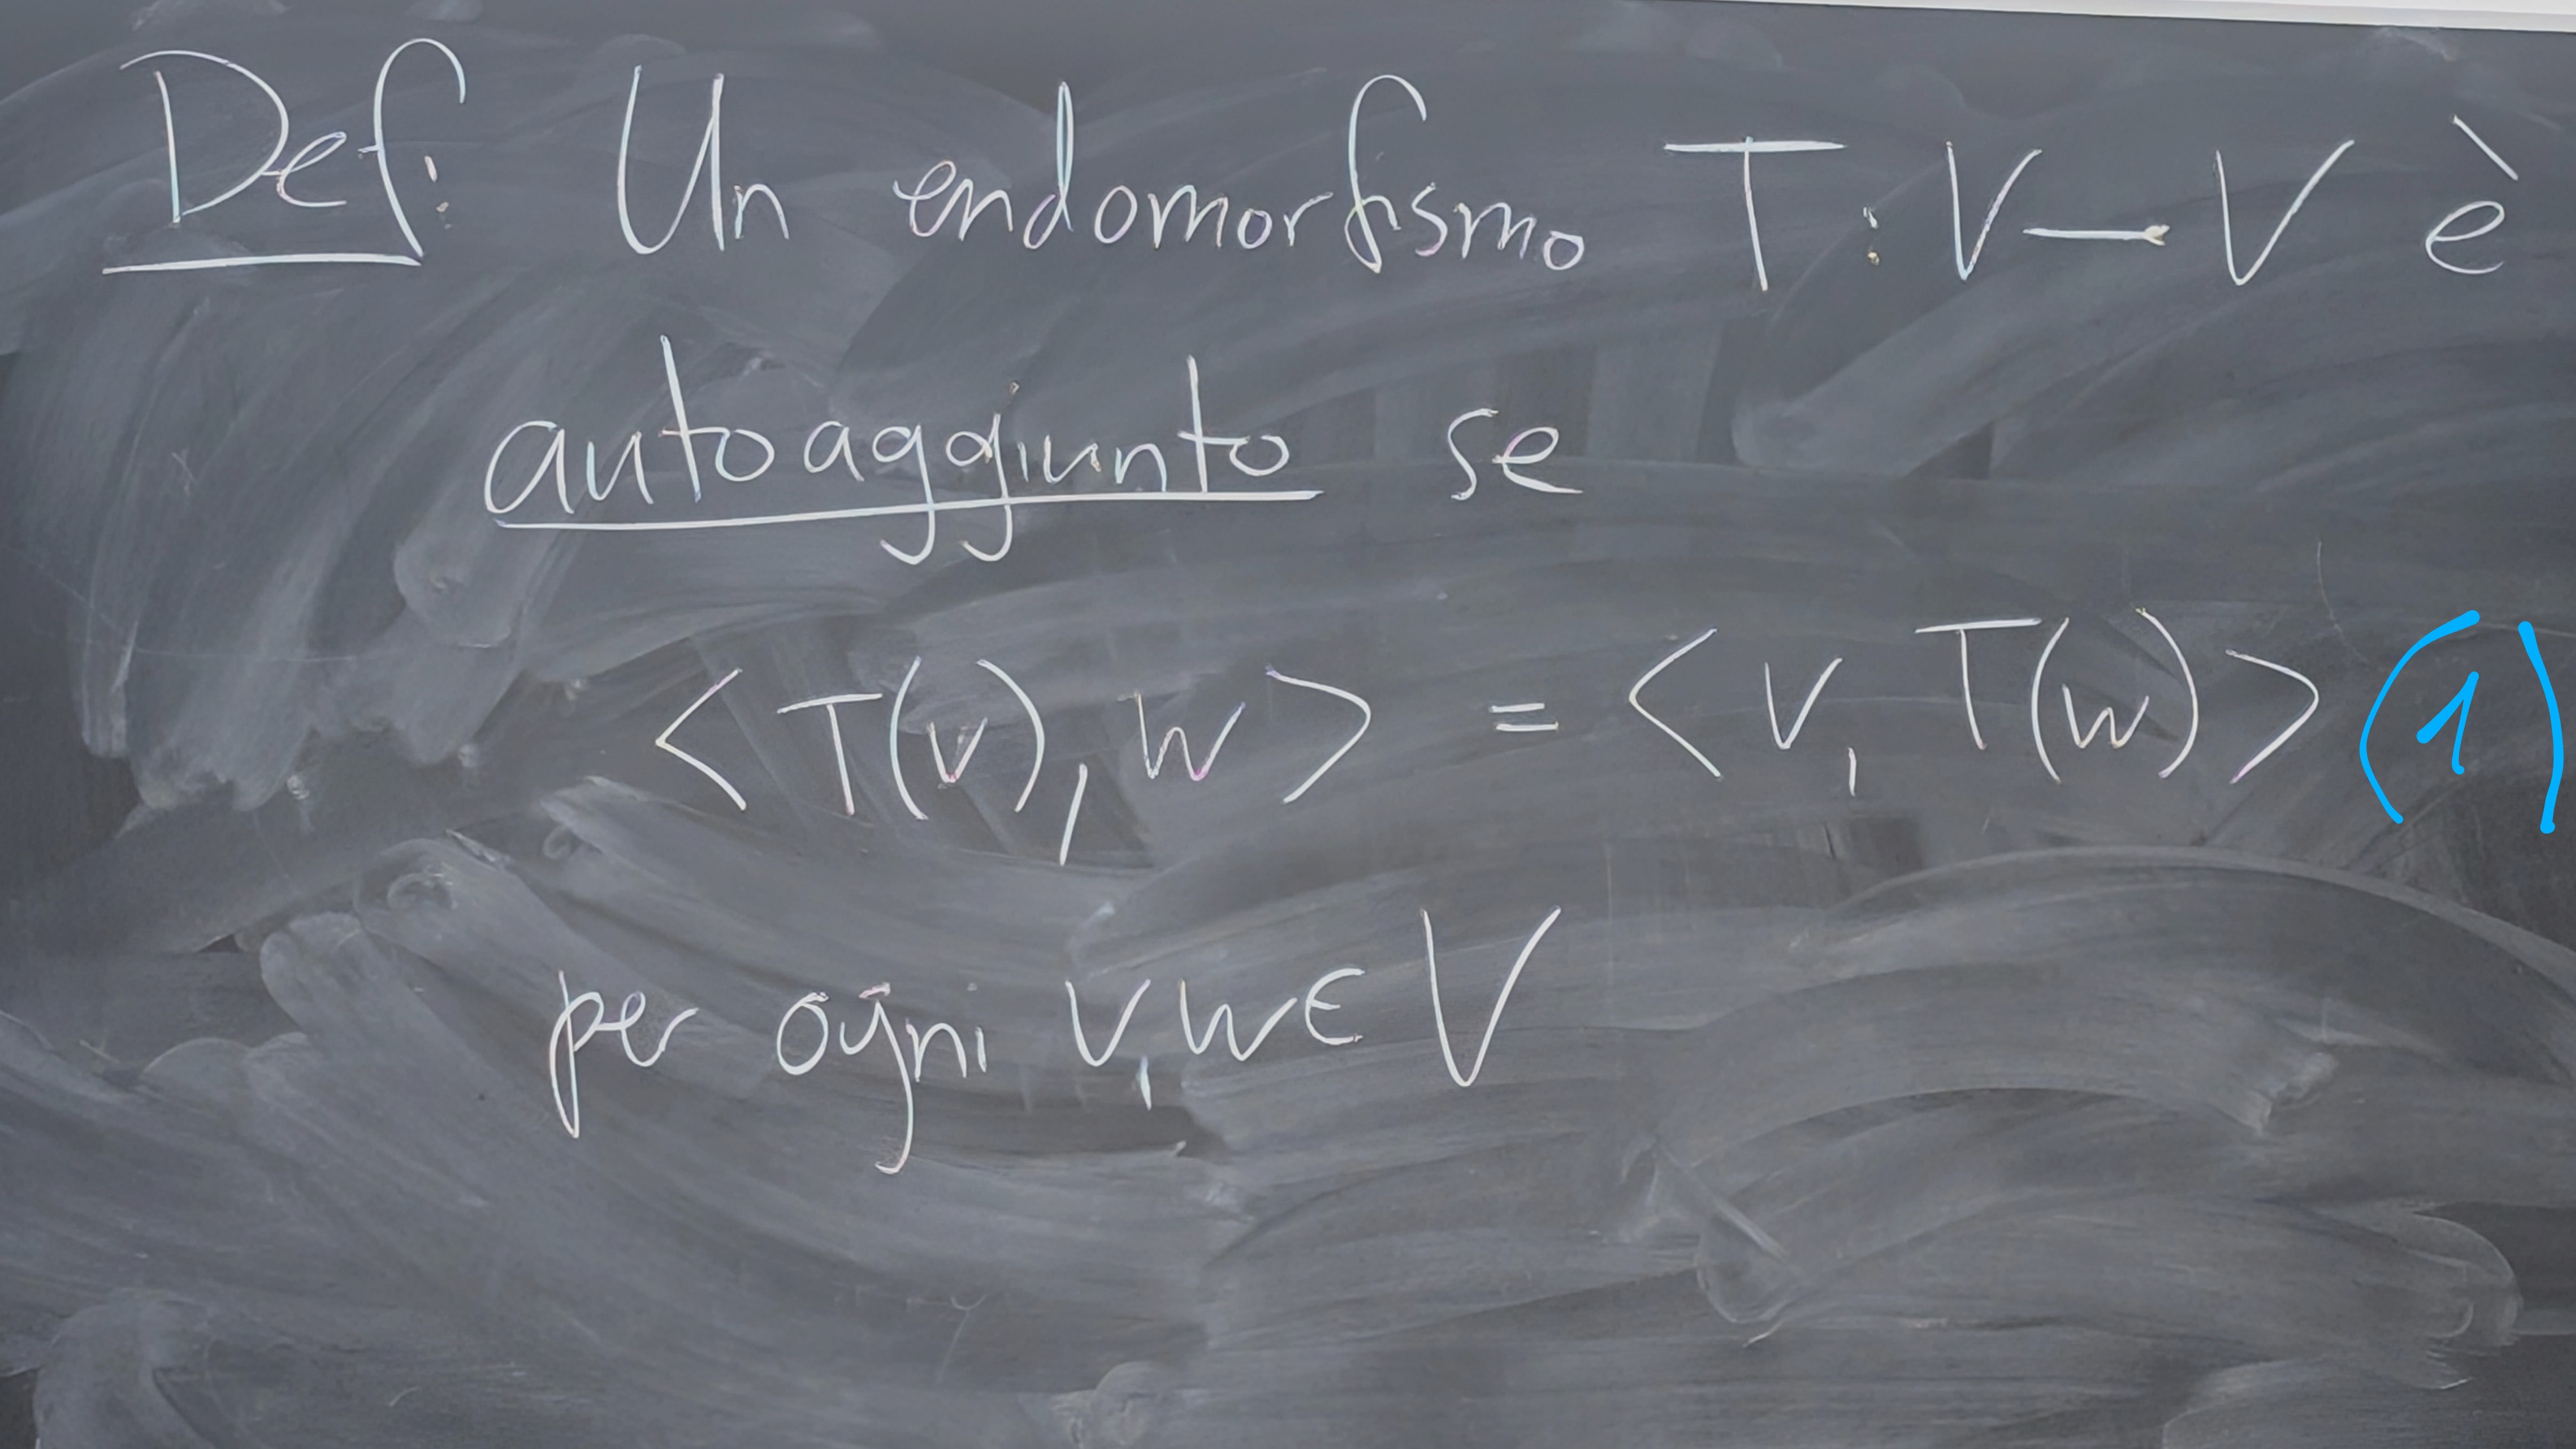 Def: Un endomorfismo T: V → V è
autoaggiunto se
<T(v), w> = <v, T(w)> (1)
per ogni v, w ∈ V